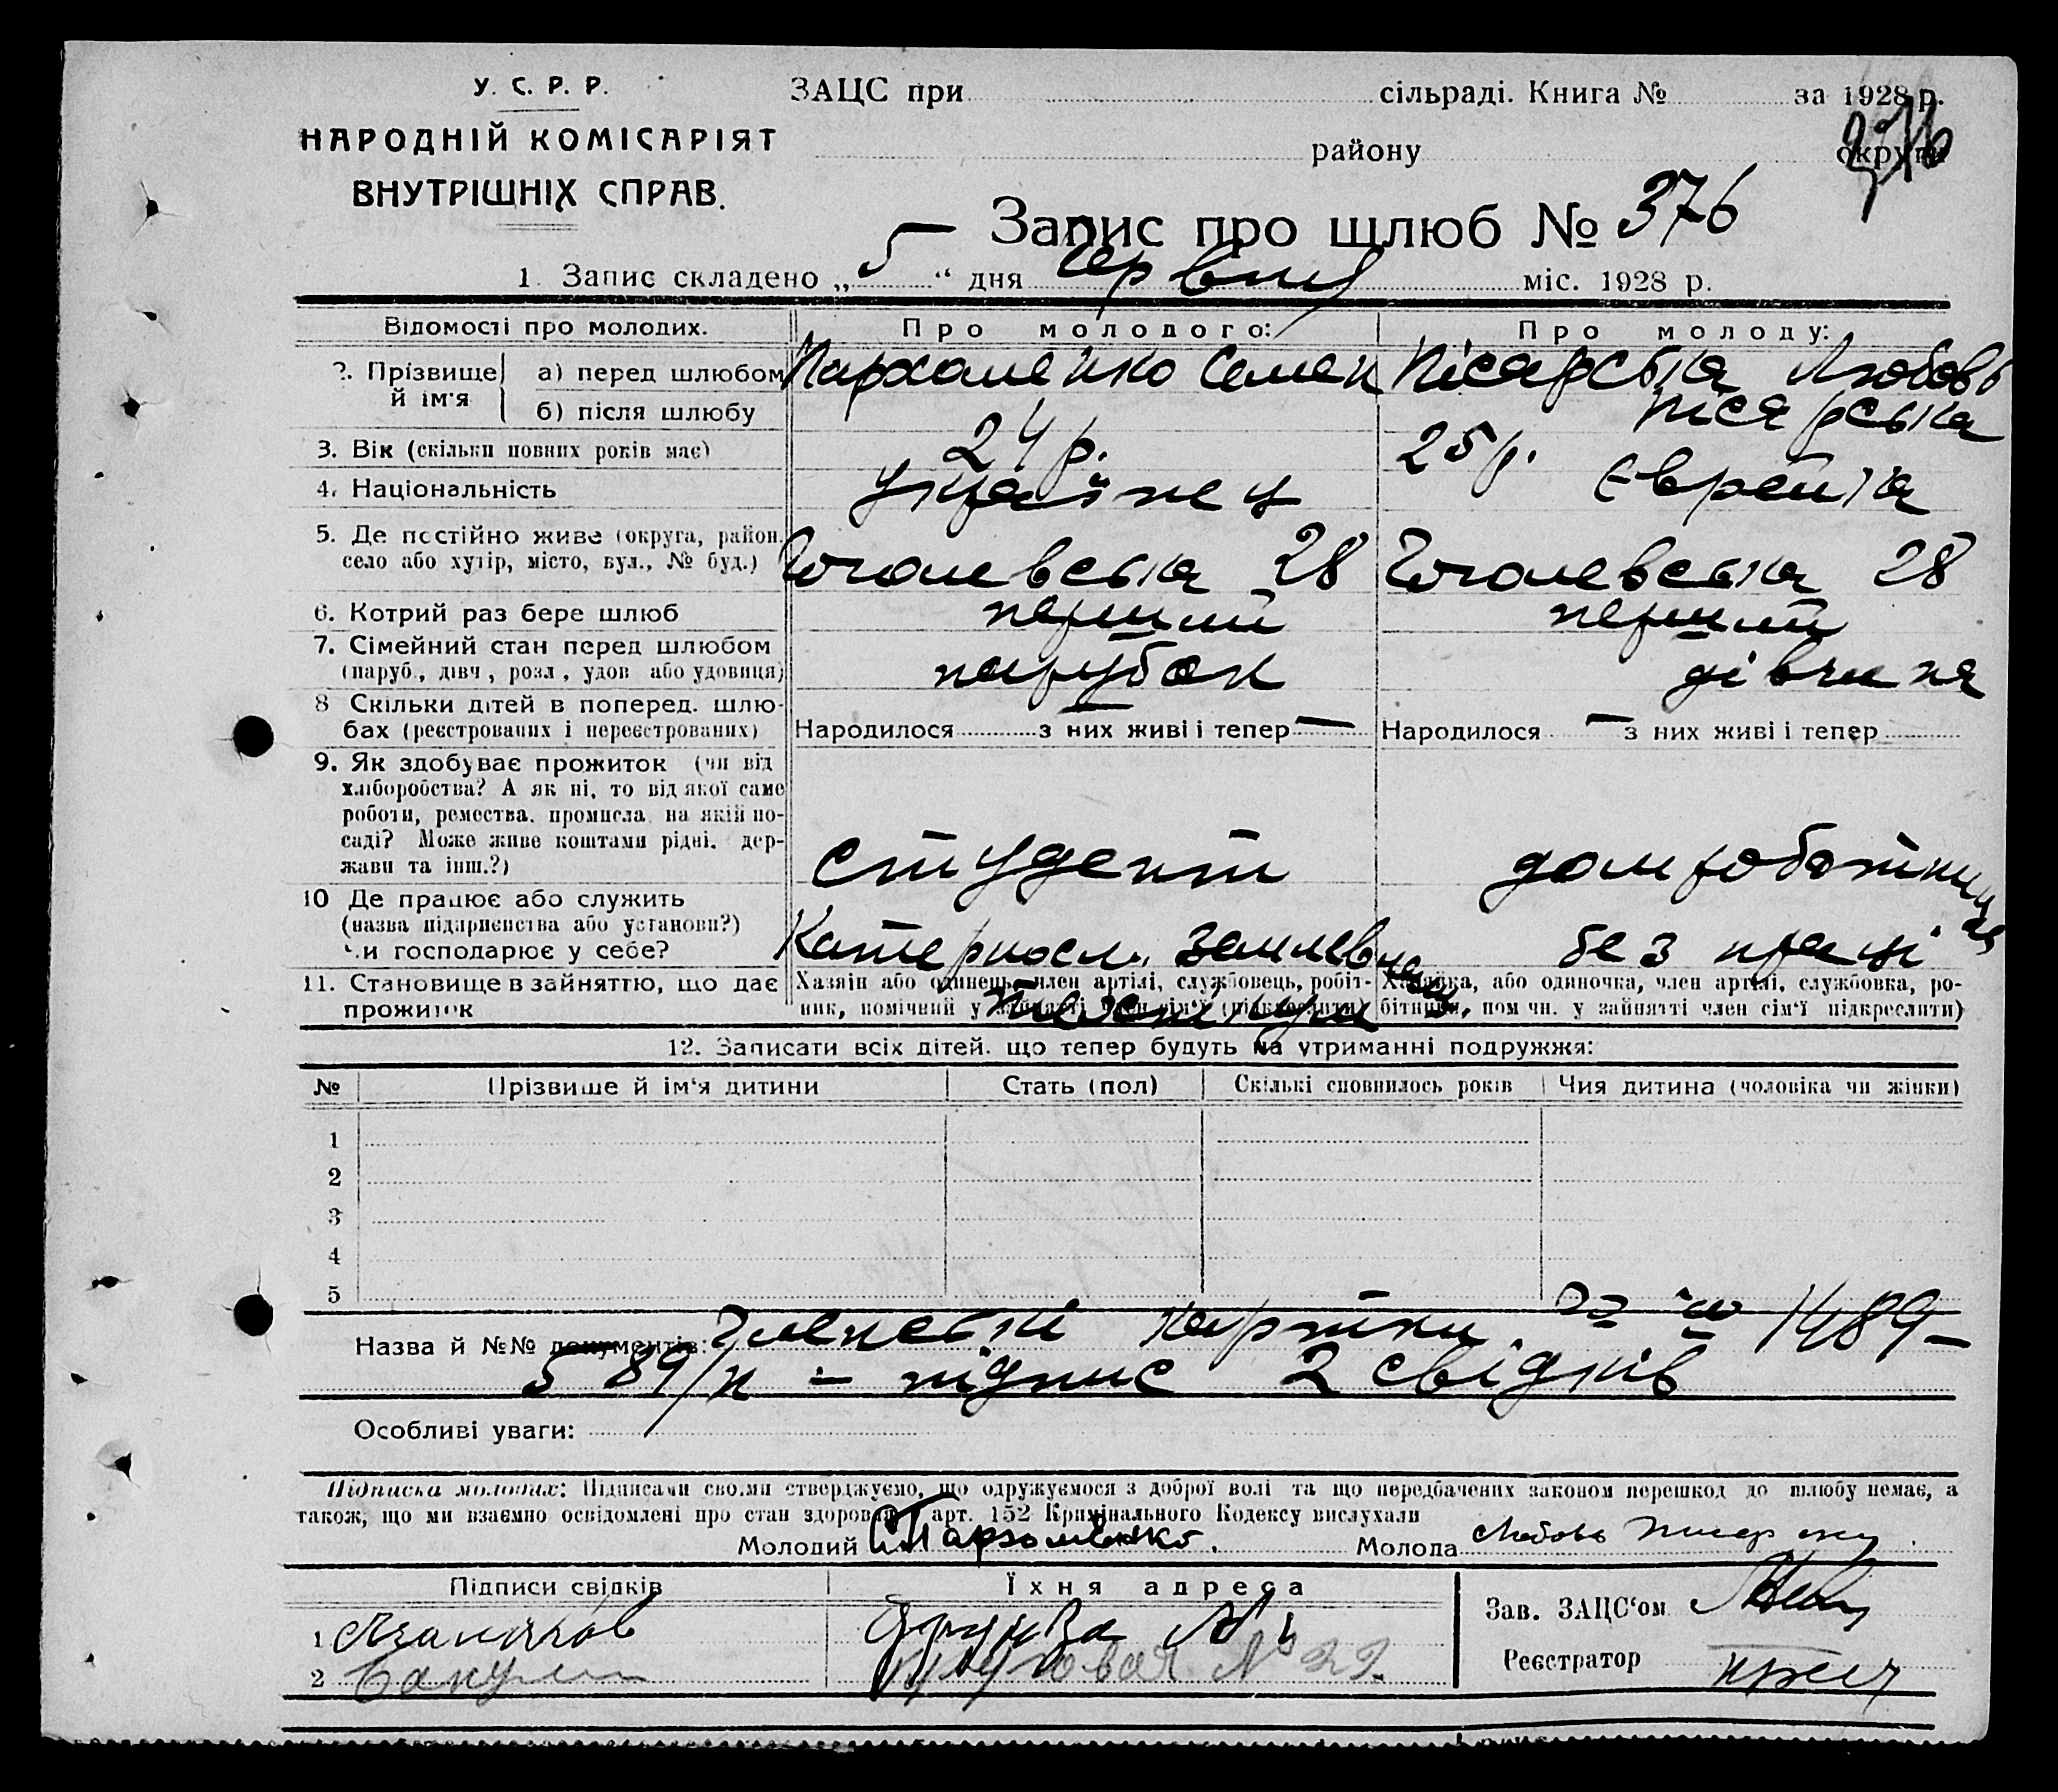 У. С. Р. Р.
НАРОДНІЙ КОМІСАРІЯТ
ВНУТРІШНІХ СПРАВ.
ЗАЦС при сільраді. Книга № за 1928 р.
району округи
376
Запис про шлюб № 376
1. Запис складено „5“ дня Червня міс. 1928 р.
Відомості про молодих. Про молодого: Про молоду:
2. Прізвище й ім'я а) перед шлюбом Пархоменко Семен Пісарська Любовь
б) після шлюбу Пісарська
3. Вік (скільки повних років має) 24 р. 25 р.
4. Національність українец Єврейка
5. Де постійно живе (округа, район,
село або хутір, місто, вул., № буд.) Гоголевська 28 Гоголевська 28
6. Котрий раз бере шлюб перший перший
7. Сімейний стан перед шлюбом
(паруб., дівч., розл., удов. або удовиця) парубок дівчина
8 Скільки дітей в поперед. шлю-
бах (реєстрованих і нереєстрованих) Народилося — з них живі і тепер — Народилося — з них живі і тепер
9. Як здобуває прожиток (чи від
хліборобства? А як ні, то від якої саме
роботи, ремества, промисла, на якій по-
саді? Може живе коштами рідні, дер-
жави та інш.?) студент домроботниця
10 Де працює або служить
(назва підприємства або установи?)
чи господарює у себе? Катериносл. без праці
11. Становище в зайняттю, що дає
прожиток
Хазяїн або одинець, член артілі, службовець, робіт-
ник, помічний у зайнятті член сім'ї (підкреслити)
Хазяйка, або одиночка, член артілі, службовка, ро-
бітниця, помічн. у зайнятті член сім'ї підкреслити)
12. Записати всіх дітей, що тепер будуть на утриманні подружжя:
№ Прізвище й ім'я дитини Стать (пол) Скількі сповнилось років Чия дитина (чоловіка чи жінки)
1
2
3
4
5
Назва й №№ документів: Членські картки за № 1489 —
589/н — підпис 2 свідків
Особливі уваги:
Підписка молодих: Підписами своїми стверджуємо, що одружуємося з доброї волі та що передбачених законом перешкод до шлюбу немає, а
також, що ми взаємно освідомлені про стан здоровля арт. 152 Кримінального Кодексу вислухали
Молодий СПархоменко. Молода Любовь
Підписи свідків Їхня адреса Зав. ЗАЦС'ом
1
2 № 29.
Реєстратор